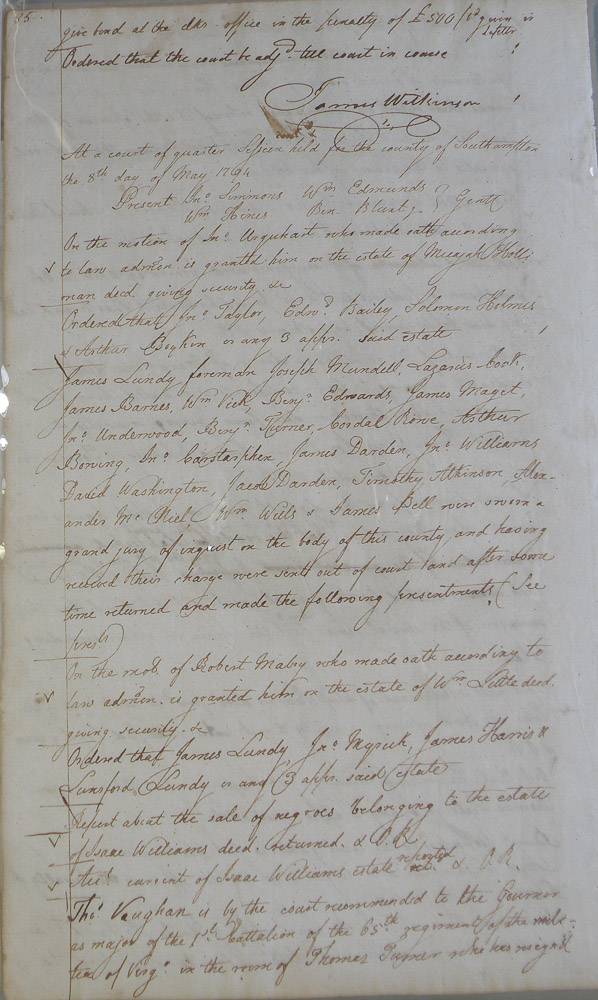 give bond at the clks office in the penalty of £500
Ordered that the court be adjd till court in course
James Wilkinson
At a court of quarter Session held for the county of Southampton
the 8th day of May 1794
Present Jno Simmons Wm Edmunds
Wm Hines Ben Blunt Gentl
On the motion of Jno Urquhart who made oath according
to law admon is granted him on the estate of Micajah Holli
man decd giving security &c
Ordered that Jno Taylor, Edwd Bailey, Solomon Holmes
& Arthur Boykin or any 3 appr. said estate
James Lundy foreman Joseph Mundell, Lazarus Cook,
James Barnes, Wm Vick, Benja Edwards, James Maget,
Jno Underwood, Benja Turner, Cordal Rowe, Arthur
Bowing, Jno Carstarphen, James Darden, Jno Williams
David Washington, Jacob Darden, Timothy Atkinson, Alex-
ander Mc Niel, Wm Wills & James Bell were sworn a
grand jury of inquest on the body of this county and having
received their charge were sent out of court and after some
time returned and made the following presentments (See
prests)
On the mo. of Robert Mabry who made oath according to
law admon. is granted him on the estate of Wm Little decd.
giving security &c
Ordered that James Lundy, Jno Myrick, James Harris &
Lunsford Lundy or any 3 appr. said estate
Report about the sale of negroes belonging to the estate
of Isaac Williams decd. returned & O.R.
Acct. current of Isaac Williams estate reported & O.R.
Thos Vaughan is by the court recommended to the Governor
as major of the 1st Battalion of the 65th regiment of the mili-
tia of Virga in the room of Thomas Turner who has resignd